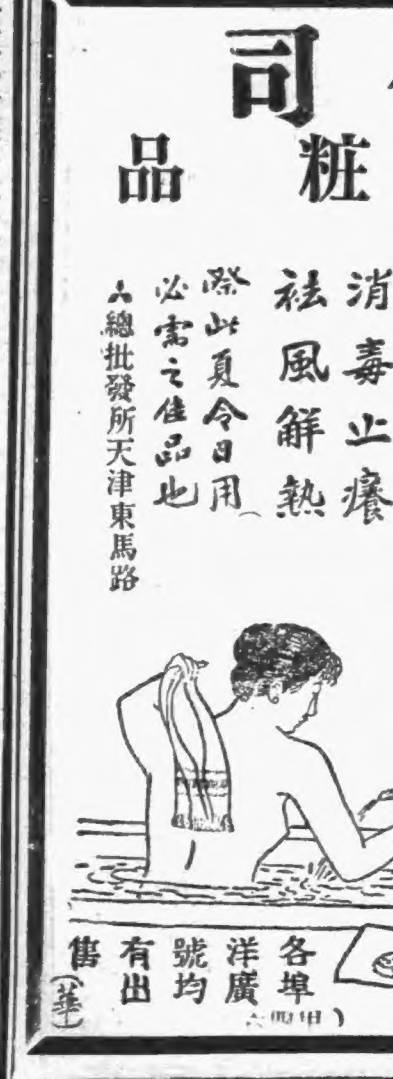 司
粧品
消毒止癢
祛風解熱
際此夏令日用
必需之佳品也
總批發所天津東馬路
各埠
洋廣
號均
有出
售
(華)